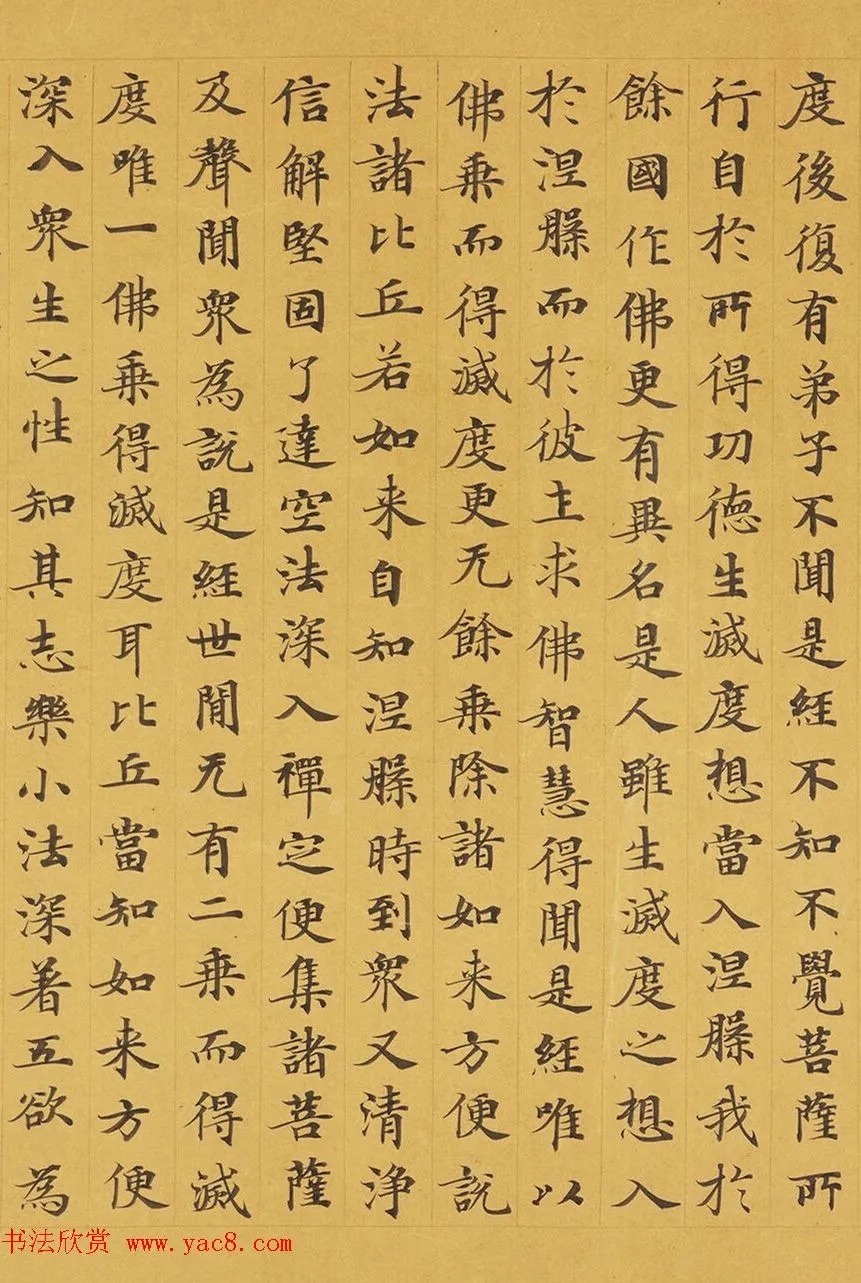 度後復有弟子不聞是經不知不覺菩薩所
行自於所得功德生滅度想當入涅槃我於
餘國作佛更有異名是人雖生滅度之想入
於涅槃而於彼土求佛智慧得聞是經唯以
佛乗而得滅度更无餘乗除諸如来方便說
法諸比丘若如来自知涅槃時到衆又清淨
信解堅固了達空法深入禪定便集諸菩薩
及聲聞衆為說是經世間无有二乗而得滅
度唯一佛乗得滅度耳比丘當知如来方便
深入衆生之性知其志樂小法深著五欲為
书法欣赏 www.yac8.com